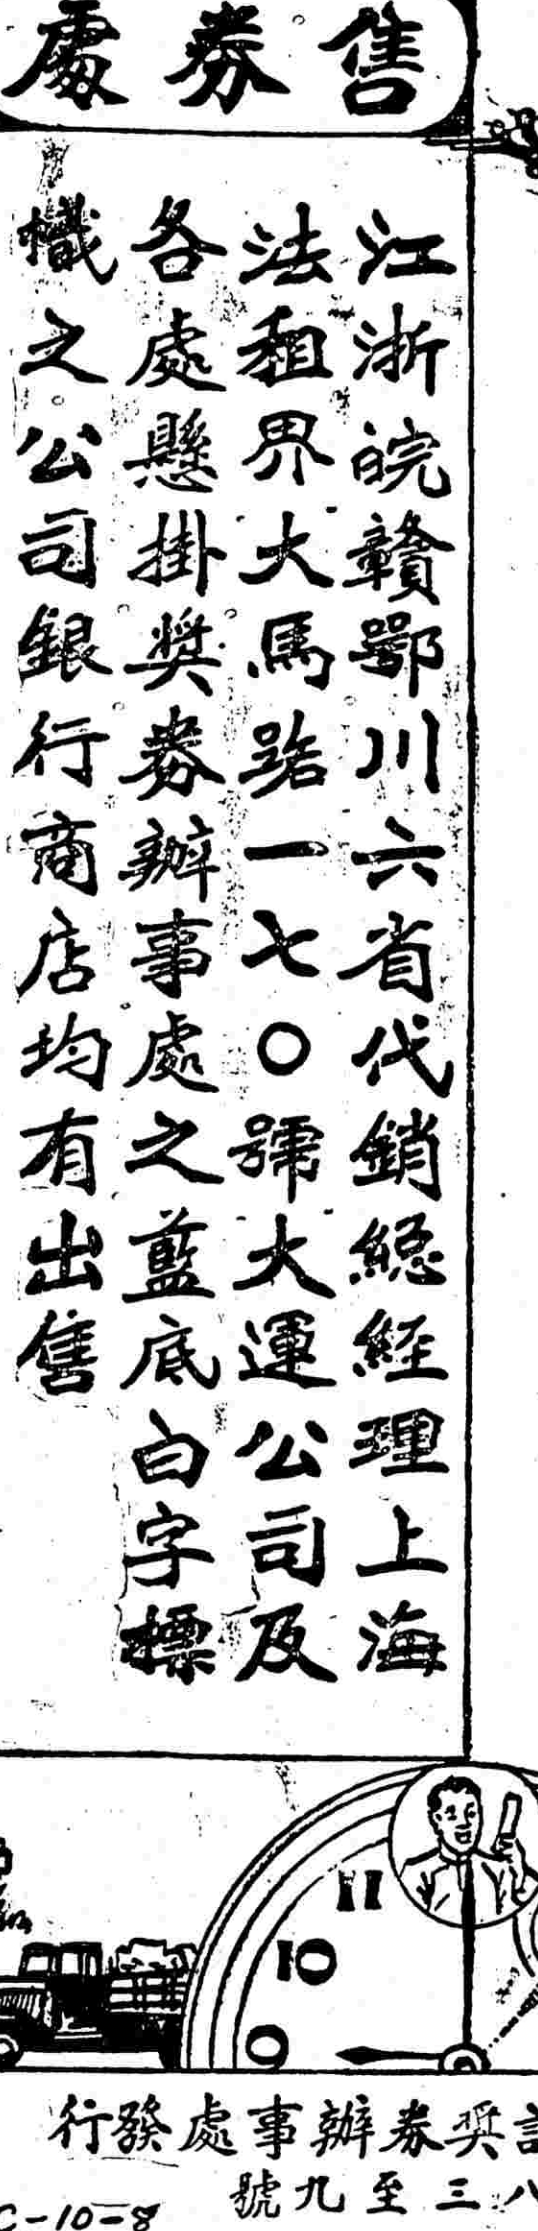 售券處
江浙皖贛鄂川六省代銷總經理上海
法租界大馬路一七〇號大運公司及
各處懸掛獎券辦事處之藍底白字標
幟之公司銀行商店均有出售
11
10
9
獎券辦事處發行
八三至九號
C-10-8